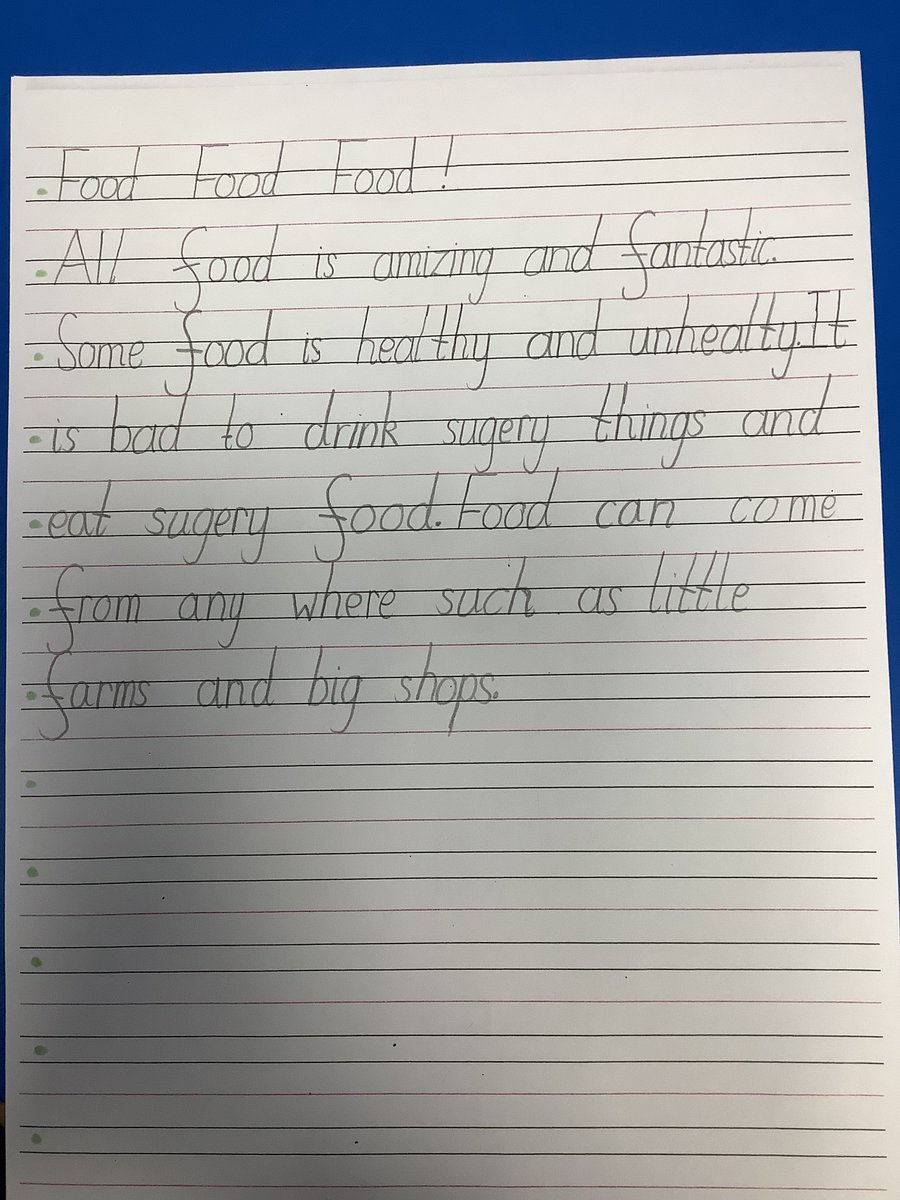 Food Food Food!
All food is amizing and fantastic.
Some food is healthy and unhealty.It
is bad to drink sugery things and
eat sugery food. Food can come
from any where such as little
farms and big shops.